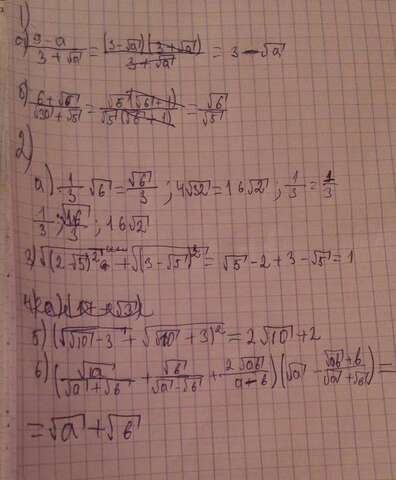 1)
а) (9-a)/(3+√a) = ((3-√a)(3+√a))/(3+√a) = 3-√a
б) (6+√6)/(√30+√5) = (√6(√6+1))/(√5(√6+1)) = √6/√5
2)
а) 1/3 √6 = √6/3 ; 4√32 = 16√2 ; 1/3 = 1/3
1/3 ; √6/3 ; 16√2
3) √(2-√5)² + √(3-√5)² = √5-2+3-√5 = 1
б) (√(√10-3) + √(√10+3))² = 2√10+2
в) (√a/(√a+√b) + √b/(√a-√b) + 2√ab/(a-b))(√a - (√ab+b)/(√a+√b)) =
= √a+√b